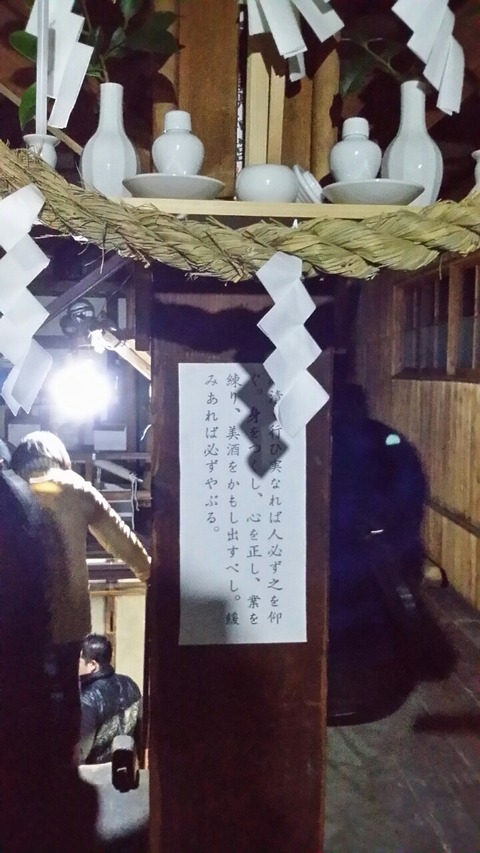 清　行ひ実なれば人必ず之を仰
ぐ。身をつくし、心を正し、業を
練り、美酒をかもし出すべし。緩
みあれば必ずやぶる。